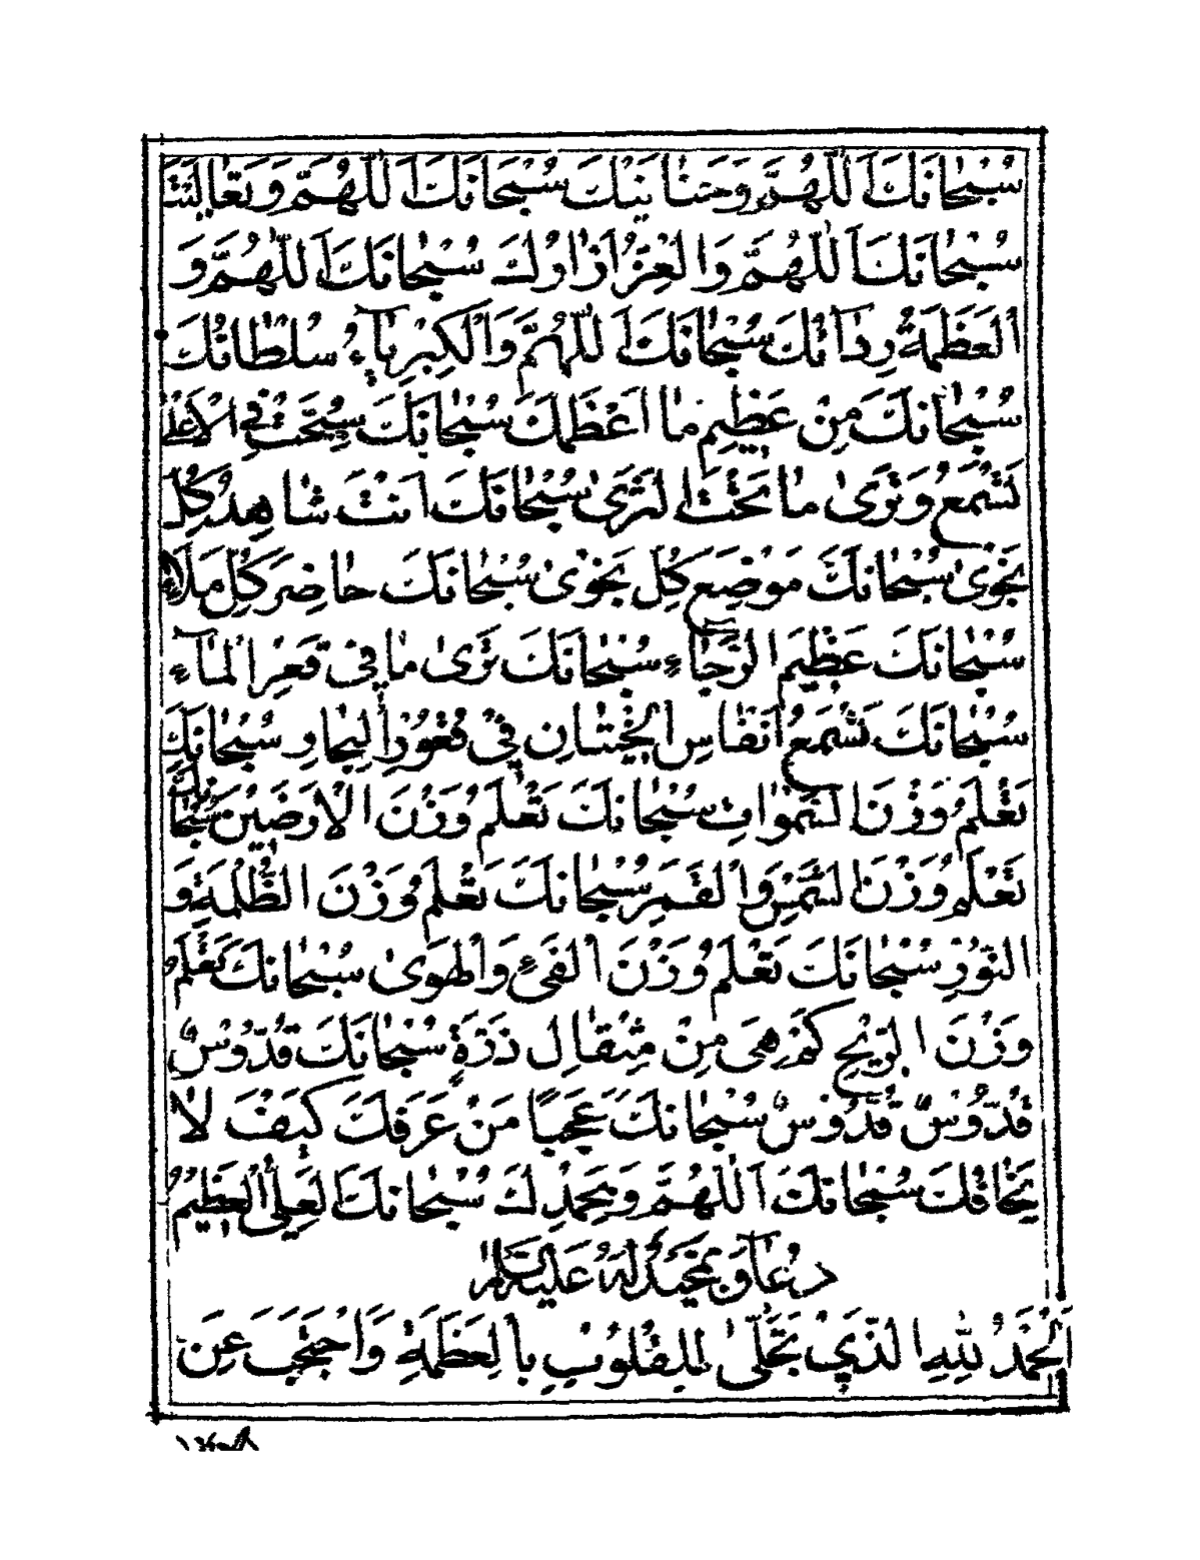 سُبْحَانَكَ اَللّٰهُمَّ وَحَنَانَيْكَ سُبْحَانَكَ اَللّٰهُمَّ وَتَعَالَيْتَ
سُبْحَانَكَ اَللّٰهُمَّ وَالْعِزُّ اِزَارُكَ سُبْحَانَكَ اَللّٰهُمَّ وَ
الْعَظَمَةُ رِدَاؤُكَ سُبْحَانَكَ اَللّٰهُمَّ وَالْكِبْرِيَآءُ سُلْطَانُكَ
سُبْحَانَكَ مِنْ عَظِيمٍ مَا اَعْظَمَكَ سُبْحَانَكَ سُبِّحْتَ فِي الْاَعْلٰى
تَسْمَعُ وَتَرٰى مَا تَحْتَ الثَّرٰى سُبْحَانَكَ اَنْتَ شَاهِدُ كُلِّ
نَجْوٰى سُبْحَانَكَ مَوْضِعُ كُلِّ نَجْوٰى سُبْحَانَكَ حَاضِرَ كُلِّ مَلَاءٍ
سُبْحَانَكَ عَظِيمَ الرَّجَاءِ سُبْحَانَكَ تَرٰى مَا فِي قَعْرِ الْمَآءِ
سُبْحَانَكَ تَسْمَعُ اَنْفَاسَ الْحِيْتَانِ فِي قُعُوْرِ الْبِحَارِ سُبْحَانَكَ
تَعْلَمُ وَزْنَ السَّمٰوَاتِ سُبْحَانَكَ تَعْلَمُ وَزْنَ الْاَرَضِيْنَ سُبْحَانَكَ
تَعْلَمُ وَزْنَ الشَّمْسِ وَالْقَمَرِ سُبْحَانَكَ تَعْلَمُ وَزْنَ الظُّلْمَةِ وَ
النُّوْرِ سُبْحَانَكَ تَعْلَمُ وَزْنَ الْفَيْءِ وَالْهَوٰى سُبْحَانَكَ تَعْلَمُ
وَزْنَ الرِّيْحِ كَمْ هِيَ مِنْ مِثْقَالِ ذَرَّةٍ سُبْحَانَكَ قُدُّوْسٌ
قُدُّوْسٌ قُدُّوْسٌ سُبْحَانَكَ عَجَبًا مَنْ عَرَفَكَ كَيْفَ لَا
يَخَافُكَ سُبْحَانَكَ اَللّٰهُمَّ وَبِحَمْدِكَ سُبْحَانَكَ الْعَلِيِّ الْعَظِيْمِ
عَلَيْهِ السَّلَامُ
اَلْحَمْدُ لِلّٰهِ الَّذِيْ تَجَلّٰى لِلْقُلُوْبِ بِالْعَظَمَةِ وَاحْتَجَبَ عَنِ